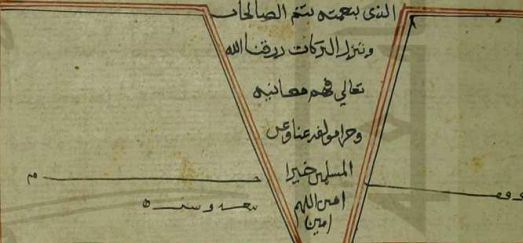 الذي بنعمته تتم الصالحات
وتنزل البركات رزقنا الله
تعالى فهم معانيه
وجزا مولفه عنا وعن
المسلمين خيرا
امين اللهم
امين